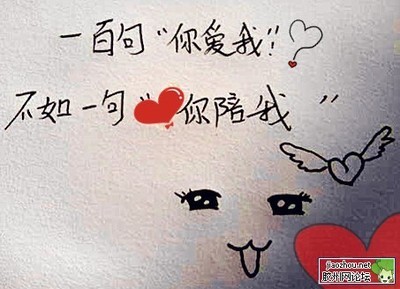 一百句“你爱我!”?
不如一句“你陪我”
jiaozhou.net
胶州网论坛